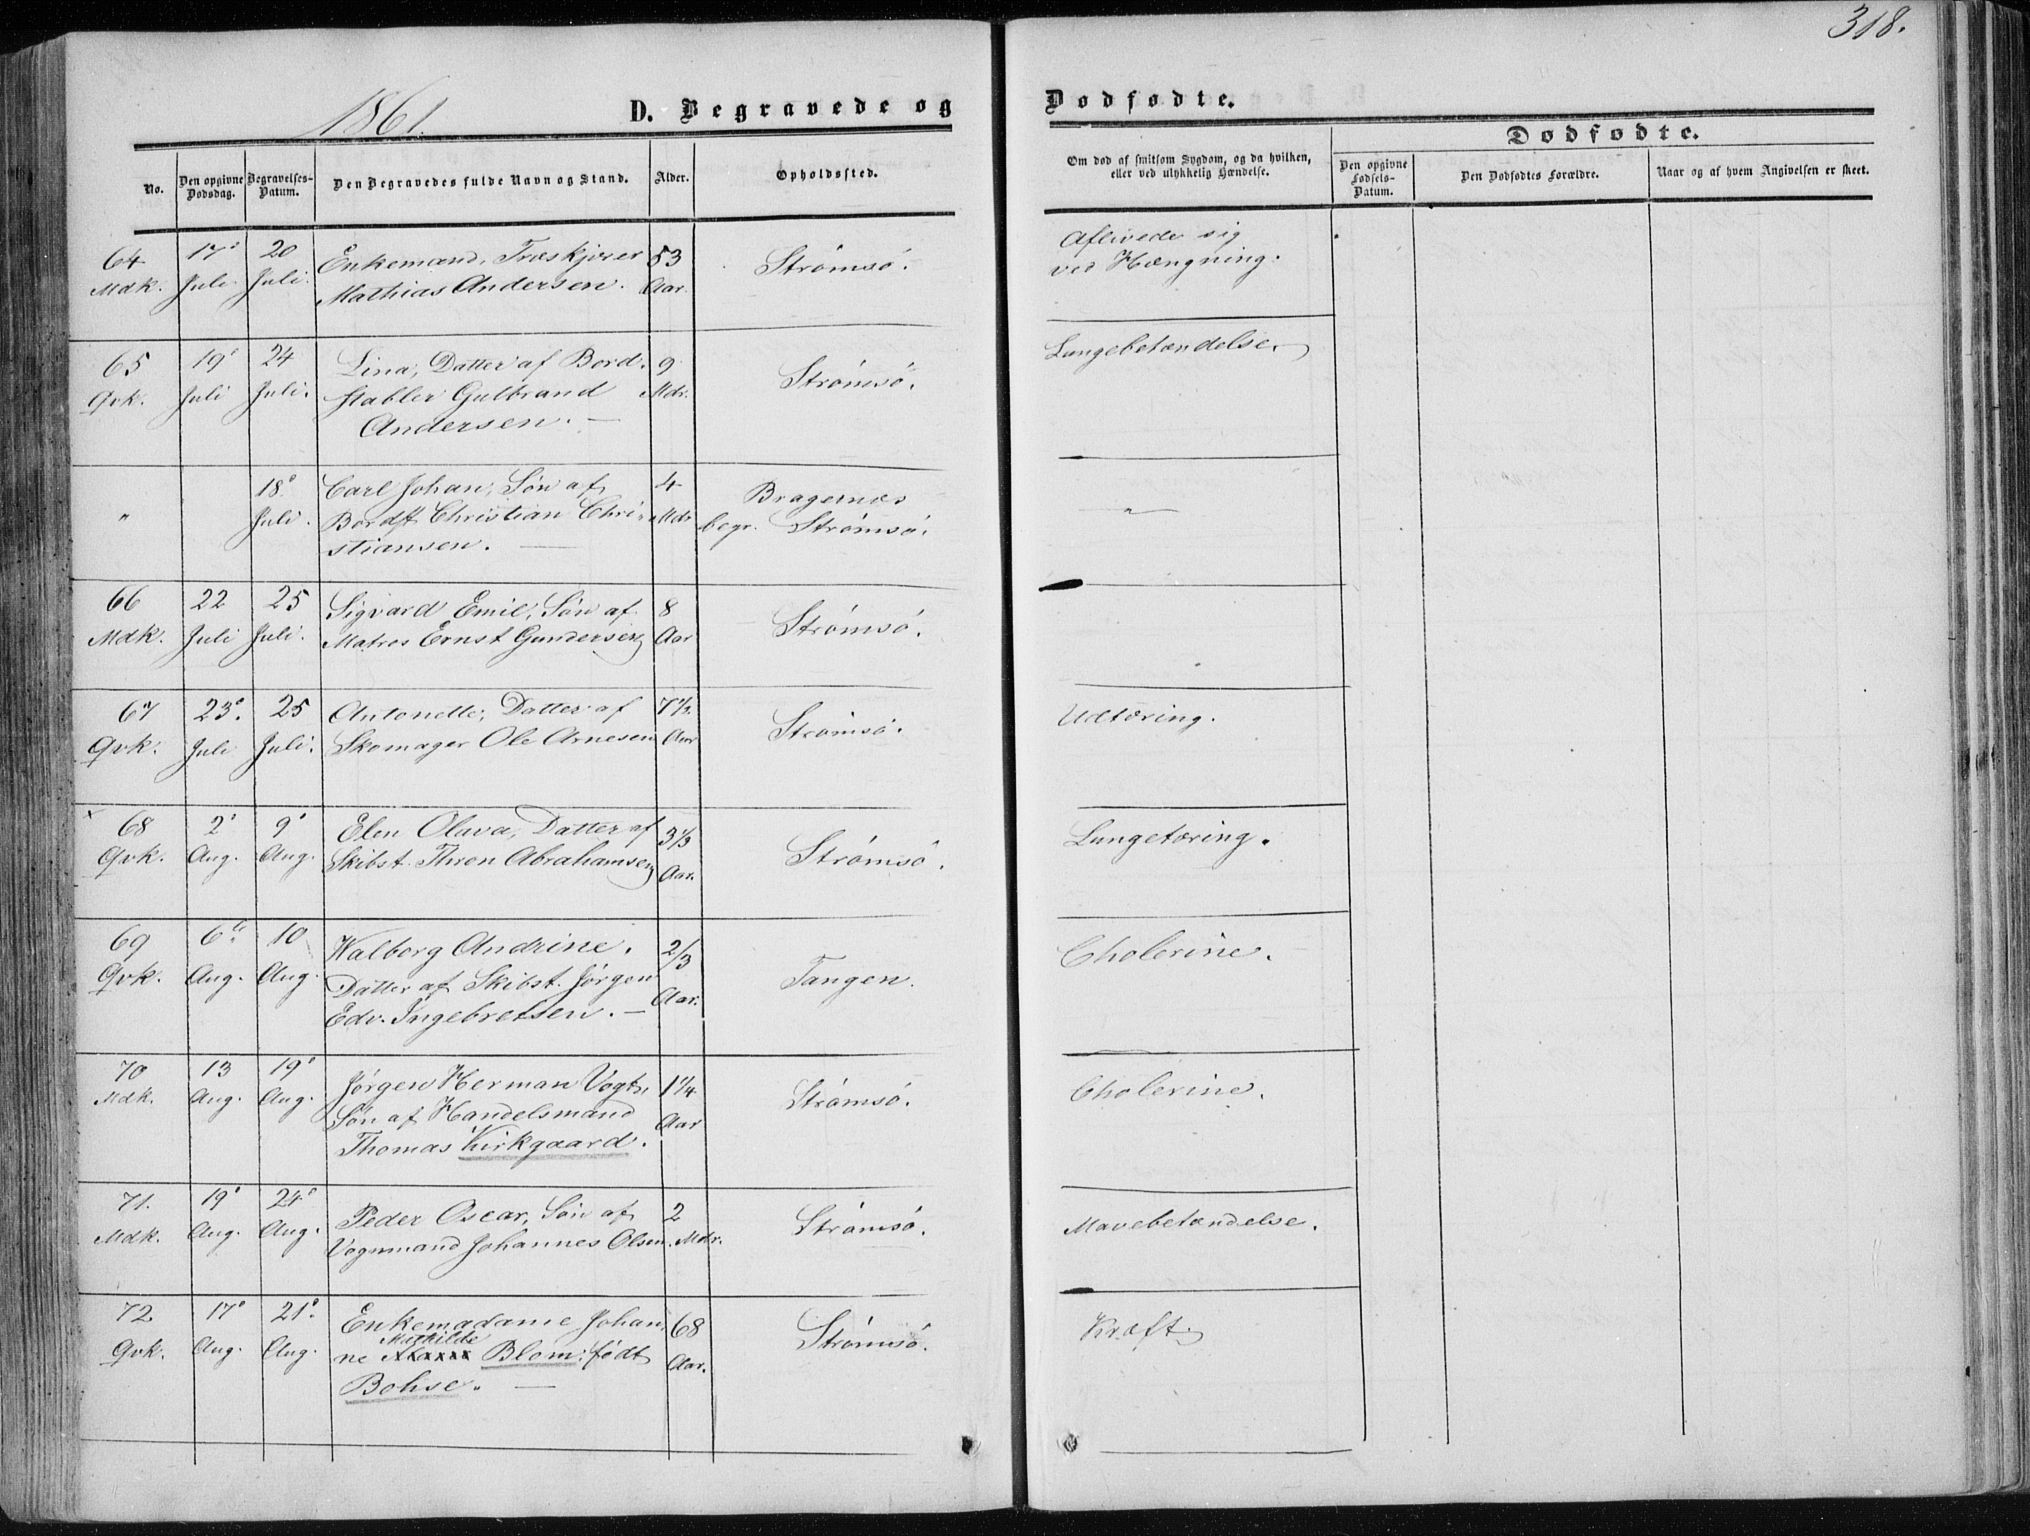 318.
1861.
D. Begravede og
Dødfødte.
No.
Den opgivne Dødsdag.
Begravelses-Datum.
Den Begravedes fulde Navn og Stand.
Alder.
Opholdssted.
Om død af smitsom Sygdom, og da hvilken,
eller ved ulykkelig Hændelse.
Dødfødte.
Den opgivne Fødsels-Datum.
Den Dødfødtes Forældre.
Naar og af hvem Angivelsen er skeet.
64 17' 20 Enkemand, Træskjærer 53 Strømsö. Aflivede sig
Mdk. Juli Juli. Mathias Andersen. Aar. ved Hængning.
65 19' 24 Lina, Datter af Bord- 9 Strømsö. Lungebetændelse.
Qvk. Juli Juli. stabler Gulbrand Mdr.
Andersen. —
18' Carl Johan, Sön af 4 Bragernæs
" Juli. Bordst. Christian Chri- Mdr begr. Strømsö. "
stiansen. —
66 22 25 Sigvard Emil, Sön af 8 Strømsö.
Mdk. Juli Juli. Matros Ernst Gundersen Aar
67 23' 25 Antonette, Datter af 7 1/2 Strømsö. Udtæring.
Qvk. Juli Juli. Skomager Ole Arnesen Aar
x 68 2' 9' Elen Olava, Datter af 3 1/3 Strømsö. Lungetæring.
Qvk. Aug. Aug. Skibst. Thron Abrahamsen Aar.
69 6te 10 Walborg Andrine. 2/3 Tangen. Cholerine.
Qvk. Aug. Aug. Datter af Skibst. Jörgen Aar.
Edv. Ingebretsen. —
70 13 19' Jörgen Herman Vogt, 1 1/4 Strømsö. Cholerine.
Mdk. Aug. Aug. Sön af Handelsmand Aar
Thomas Kirkgaard.
71. 19' 24' Peder Oscar, Sön af 2 Strømsö. Mavebetændelse.
Mdk. Aug. Aug. Vognmand Johannes Olsen. Mdr.
72 17' 21' Enkemadame Johan- 68 Strømsö. Kræft.
Mathilde
Qvk. Aug. Aug. ne Blom, född Aar.
Bohse. —